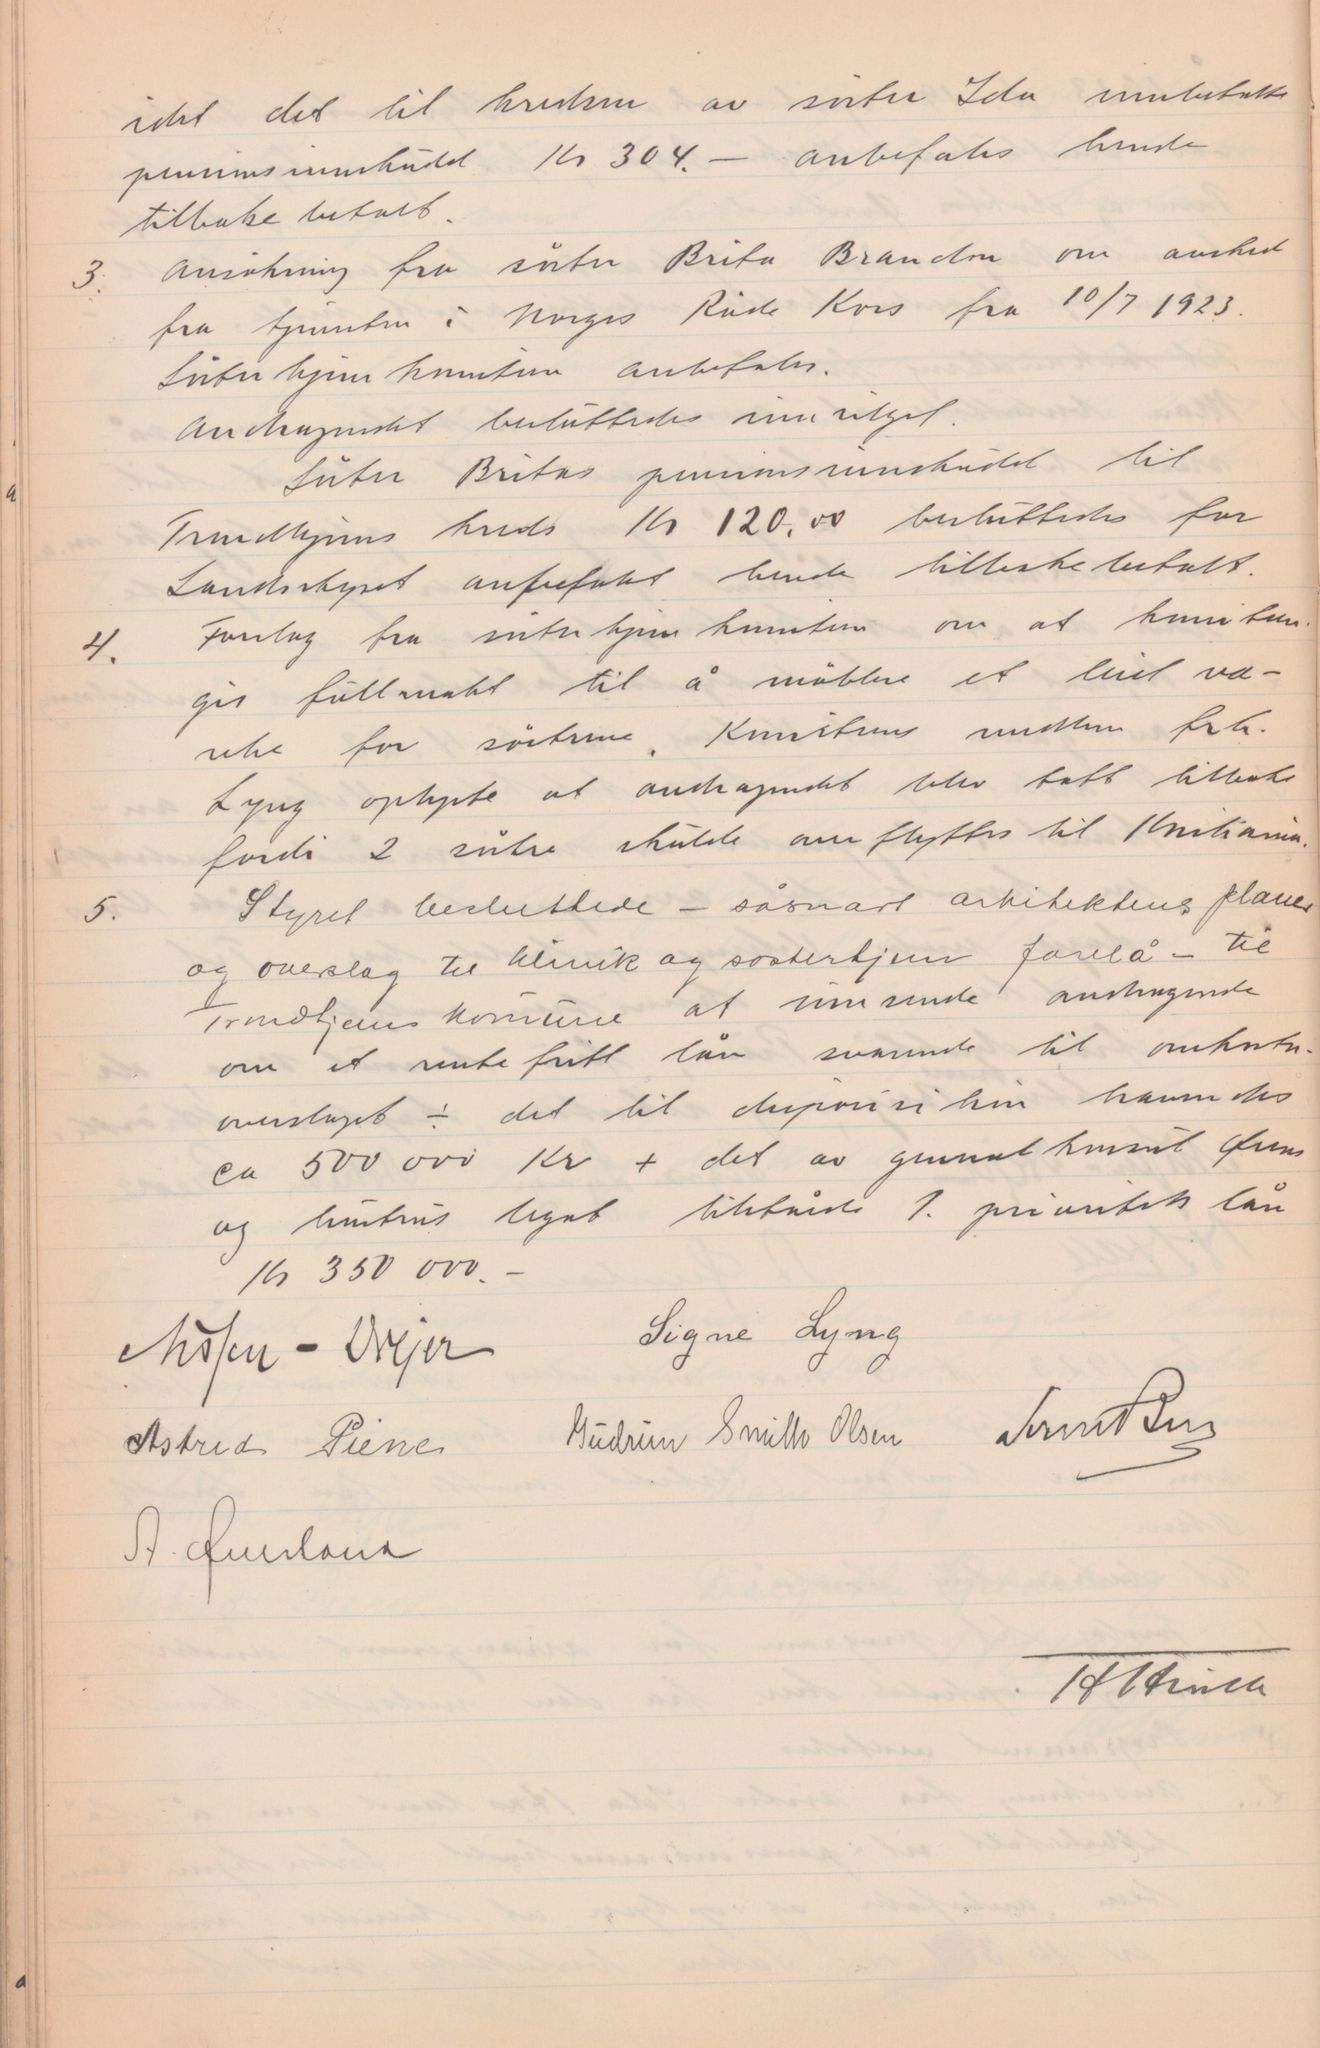 idet det til kredsen av söster Ida innbetalte
pensionsinnskudd Kr 304.— anbefales hende
tilbake betalt.
3. Ansökning fra söster Brita Brandon om avsked
fra tjenesten i Norges Röde Kors fra 10/7 1923.
Sösterhjemkomiteen anbefaler.
Andragendet besluttedes innvilget.
Söster Britas pensionsinnskudd til
Trondhjems kreds Kr 120.00 besluttedes for
Landsstyret anbefalet hende tilbakebetalt.
4. Forslag fra sösterhjemkomiteen om at komiteen
gis fullmakt til å möblere et leiet væ-
relse for söstrene. Komiteens medlem frk.
Lyng oplyste at andragendet blev tatt tilbake
fordi 2 söstre skulde overflyttes til Kristiania.
5. Styret besluttede – såsnart arkitektens planer
og overslag til klinik og søsterhjem forelå – til
Trondhjems komune at innsende andragende
om et rentefritt lån svarende til omkostn.
overslaget ÷ det til disposisjon havendes
ca 500 000 Kr + det av generalkonsul
og hustrus legat tilståede 1. prioritets lån
Kr 350 000.–
Signe Lyng
Astrid Piene Gudrun Smith Olsen
A. Øverland